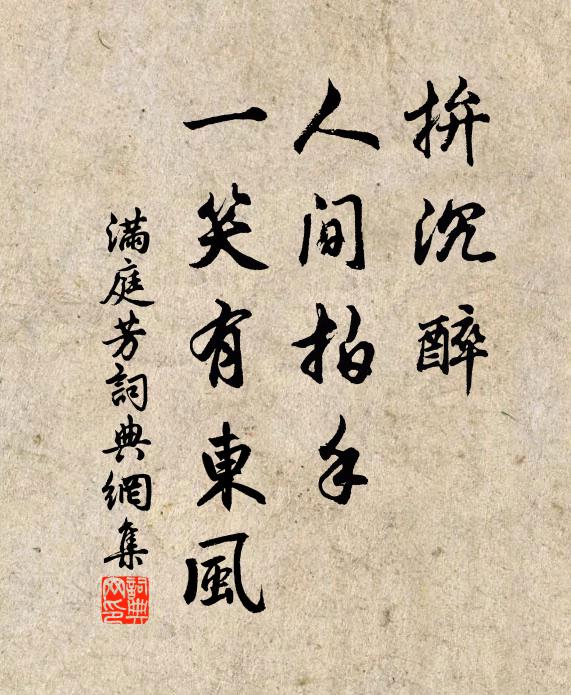 拚沉醉
人間拍手
一笑有東風
滿庭芳詞典網集
詞典網印